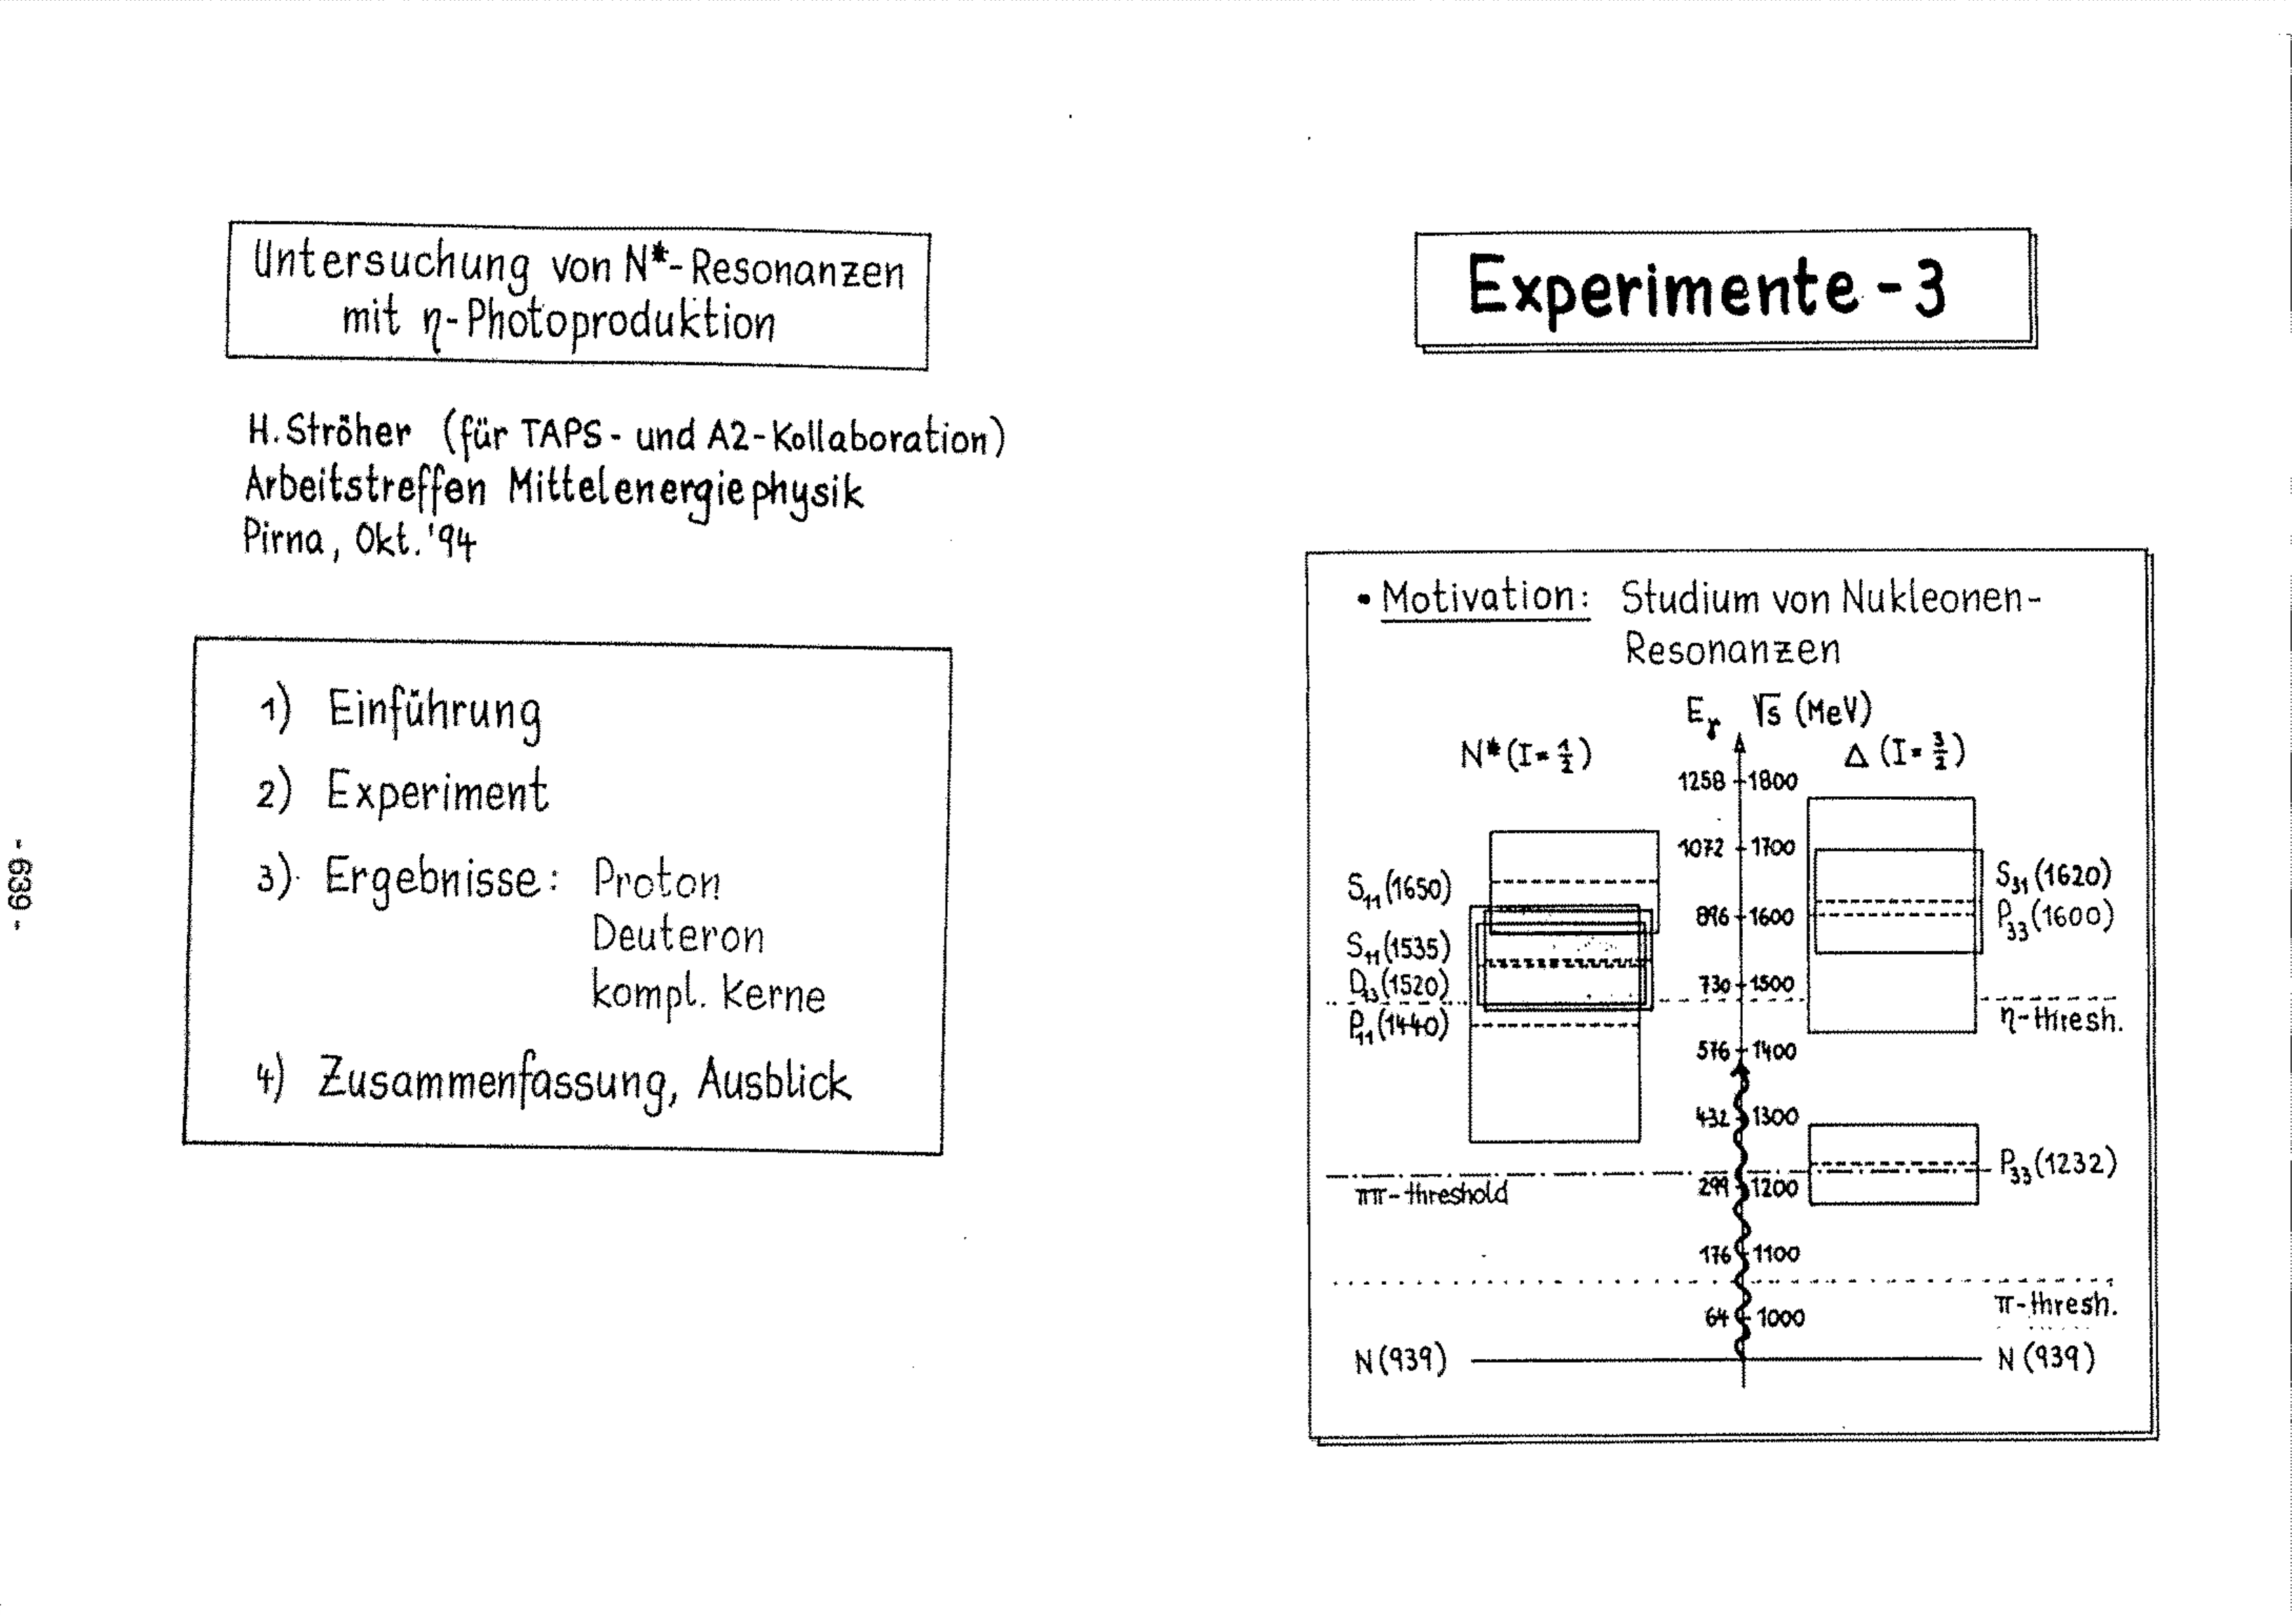 Untersuchung von N*-Resonanzen
mit η-Photoproduktion
H. Ströher (für TAPS- und A2-Kollaboration)
Arbeitstreffen Mittelenergiephysik
Pirna, Okt. '94
1) Einführung
2) Experiment
3) Ergebnisse: Proton
Deuteron
kompl. Kerne
4) Zusammenfassung, Ausblick
- 639 -
Experimente - 3
• Motivation: Studium von Nukleonen-
Resonanzen
Eγ √s (MeV)
N* (I=1/2) Δ (I=3/2)
1258 1800
1072 1700
S11(1650) S31(1620)
896 1600 P33(1600)
S11(1535)
D13(1520) 730 1500
η-thresh.
P11(1440)
576 1400
432 1300
P33(1232)
ππ-threshold 299 1200
176 1100
π-thresh.
64 1000
N(939) N(939)